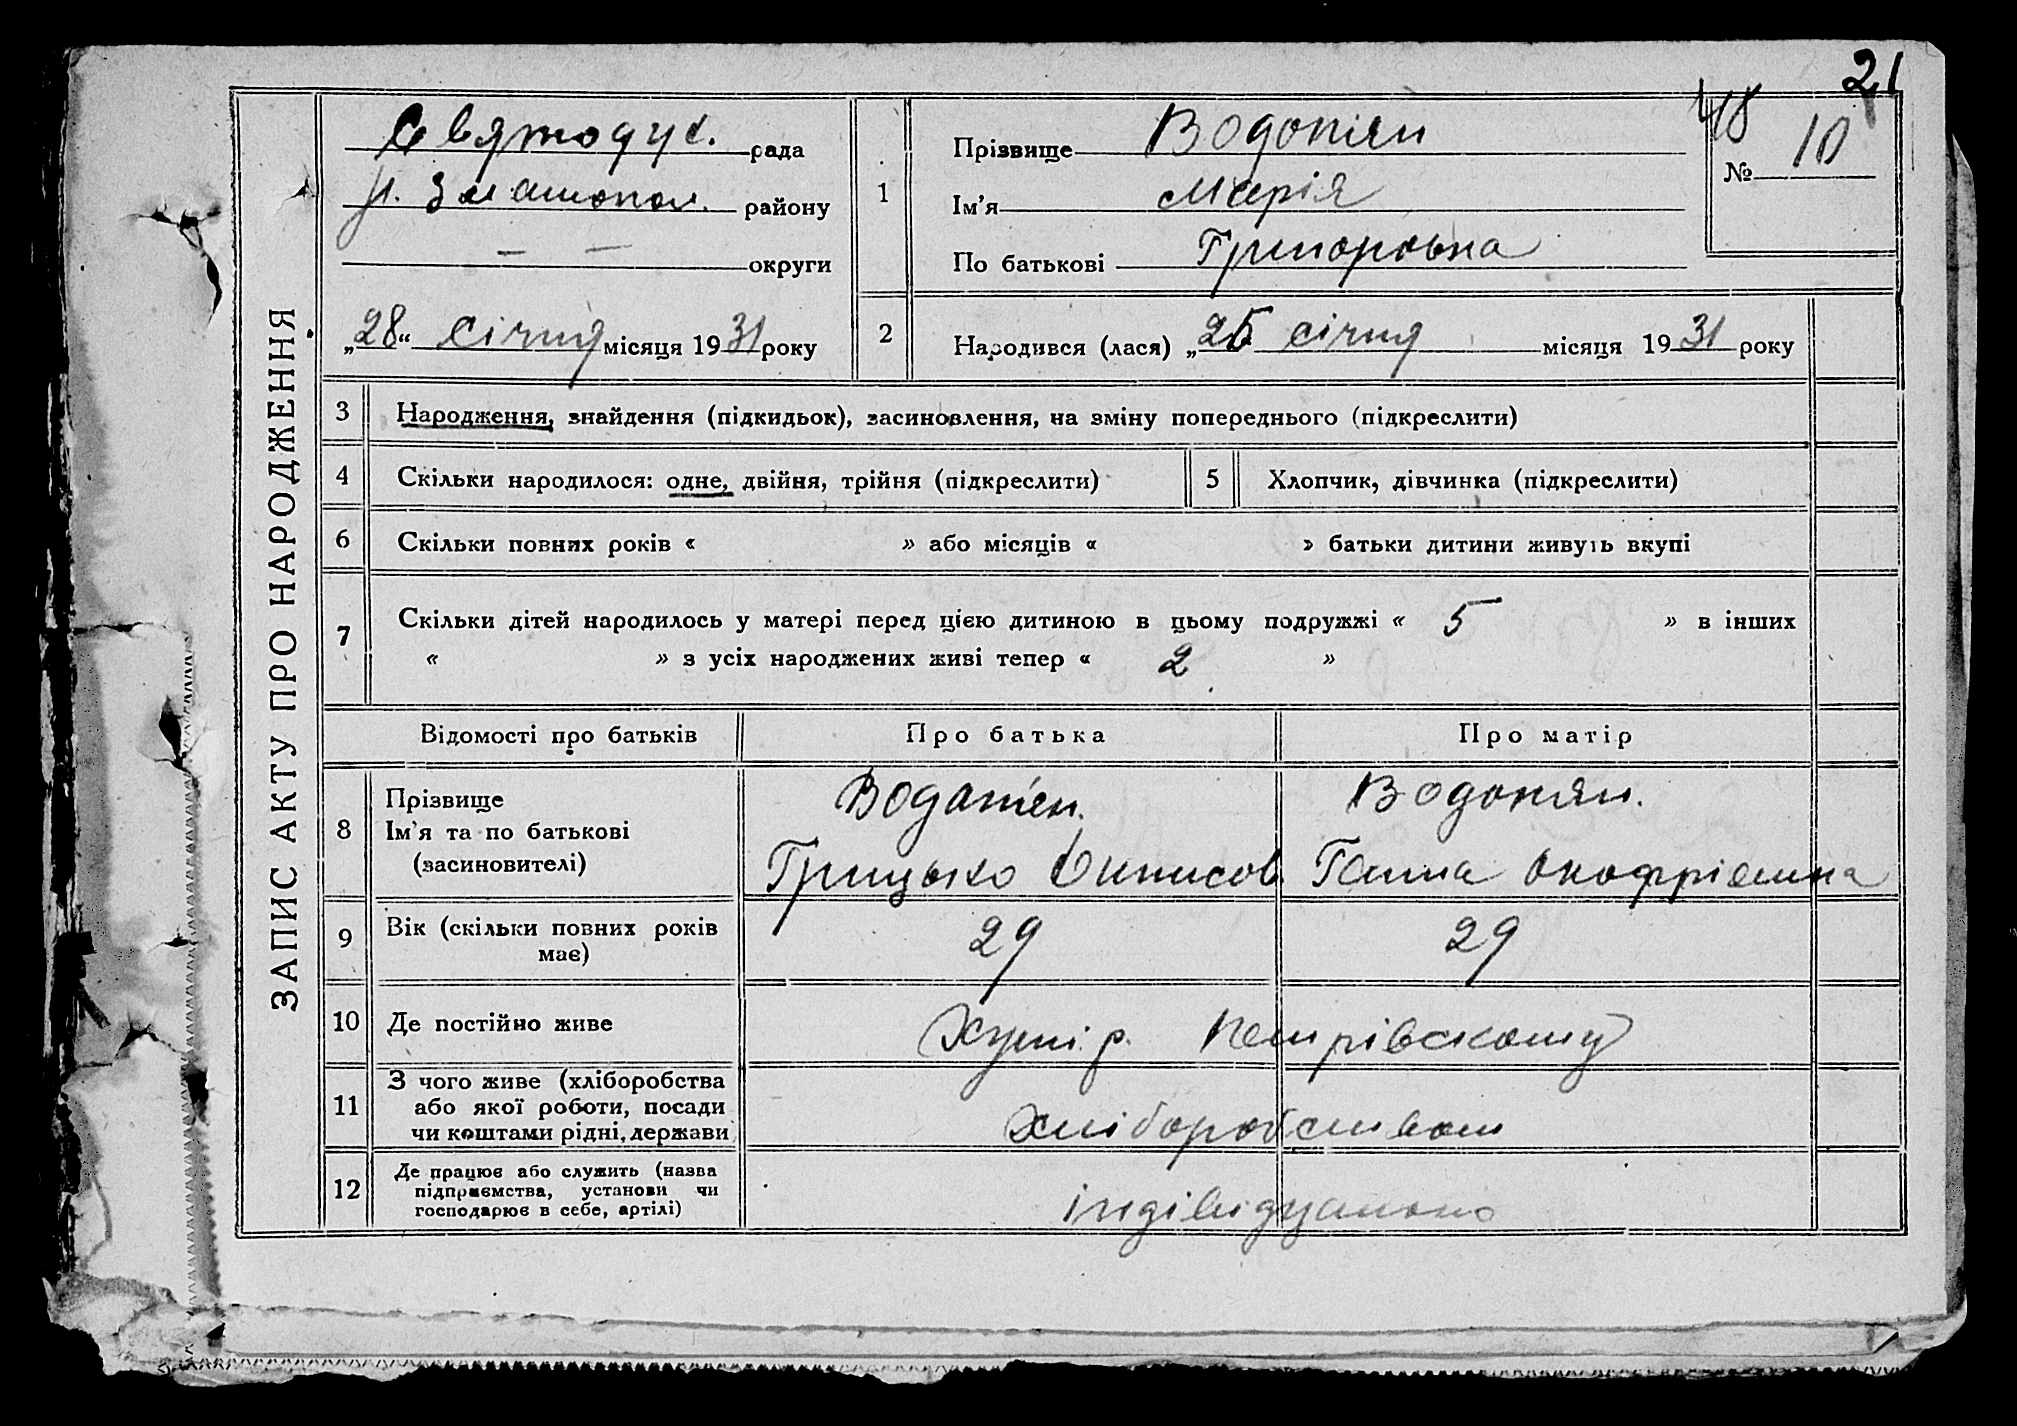 21
48
Святодух. рада
р. Златопол. району
— — округи
„28“ січня місяця 1931 року
1
Прізвище Водопян
Ім'я Марія
По батькові Григоровна
№ 10
2
Народився (лася) „25 січня місяця 1931 року
ЗАПИС АКТУ ПРО НАРОДЖЕННЯ
3 Народження, знайдення (підкидьок), засиновлення, на зміну попереднього (підкреслити)
4 Скільки народилося: одне, двійня, трійня (підкреслити) 5 Хлопчик, дівчинка (підкреслити)
6 Скільки повних років « » або місяців « » батьки дитини живуть вкупі
7 Скільки дітей народилось у матері перед цією дитиною в цьому подружжі « 5 » в інших
« » з усіх народжених живі тепер « 2 »
Відомості про батьків Про батька Про матір
8 Прізвище
Ім'я та по батькові
(засиновителі)
Водапян.
Грицько Динисов
Водопян.
Ганна Онофріевна
9 Вік (скільки повних років
має)
29 29
10 Де постійно живе Хуті р. Петрівскому
11 З чого живе (хліборобства
або якої роботи, посади
чи коштами рідні, держави
Хліборобством
12 Де працює або служить (назва
підприємства, установи чи
господарює в себе, артілі)
індівідуально